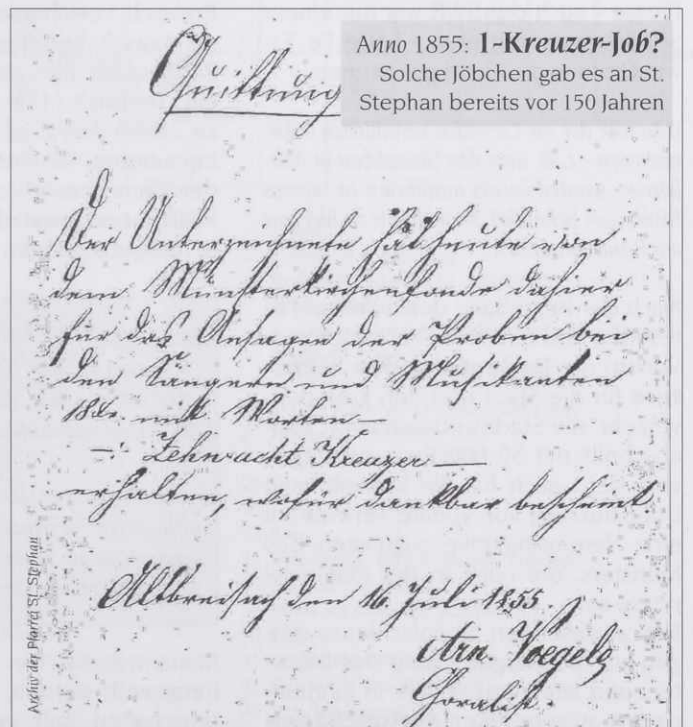 Quittung
Anno 1855: 1-Kreuzer-Job?
Solche Jöbchen gab es an St.
Stephan bereits vor 150 Jahren
Der Unterzeichnete hat heute von
dem Münsterkirchenfonde dahier
für das Ansagen der Proben bei
den Sängern und Musikanten
18 mit Worten —
Zehnacht Kreuzer —
erhalten, wofür dankbar bescheint
Altbreisach den 16. Juli 1855.
Arn. Voegele
Choralist.
Archiv der Pfarrei St. Stephan